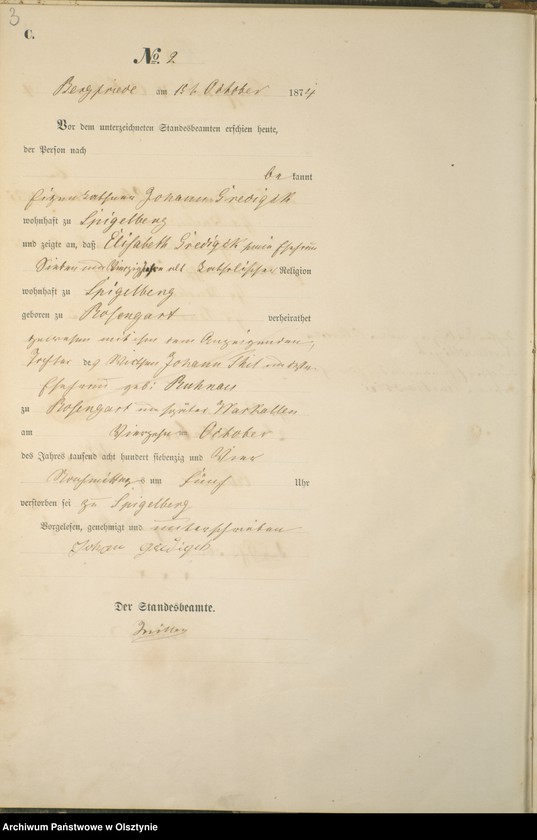 3
C.
No. 2
Bergfriede am 15t Oktober 1874
Vor dem unterzeichneten Standesbeamten erschien heute,
der Person nach
be kannt
Johann Gredigk
wohnhaft zu Spigelberg
und zeigte an, daß Elisabeth Gredigk seine Ehefrau
Sieben und Vierzig Jahre alt katholischer Religion
wohnhaft zu Spigelberg
geboren zu Rosengart verheirathet
gewesen mit ihm dem Anzeigenden,
Tochter des Wirthen Johann
Ehefrau geb: Ruhnau
zu Rosengart und später
am Vierzehn Oktober
des Jahres tausend acht hundert siebenzig und Vier
Nachmittag s um Fünf Uhr
verstorben sei zu Spigelberg
Vorgelesen, genehmigt und unterschrieben
Johan Gredigk
Der Standesbeamte.
Archiwum Państwowe w Olsztynie